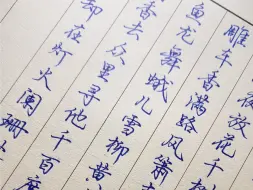 夜放花千
雕车香满路凤箫
鱼龙舞蛾儿雪柳黄
香去众里寻他千百度
却在灯火阑珊